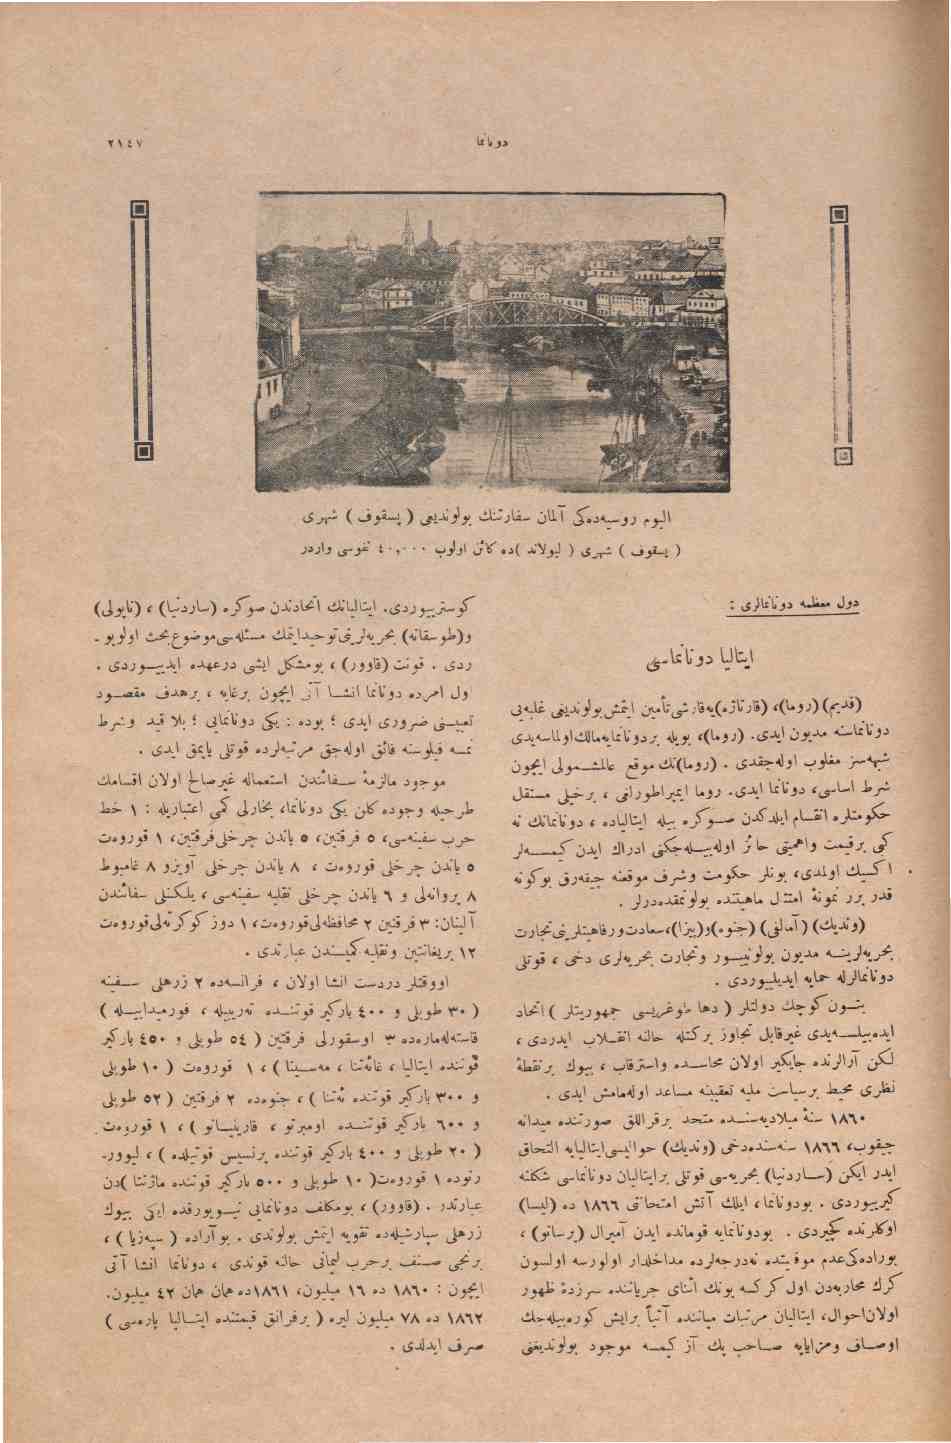 دوناما
٢١٤٧
اليوم روسيه‌ده‌كى آلمان سفارتنك بولونديغى ( پسقوف ) شهرى
( پسقوف ) شهرى ( ليولاند )ده كائن اولوب ٤٠,٠٠٠ نفوسى واردر
دول معظمه دونانمالرى :
ايتاليا دونانماسى
(قديم) (روما)، (قارتاژه)يه‌قارشى‌تأمين ايتمش‌بولونديغى غلبه‌يى
دونانماسنه مديون ايدى. (روما)، بويله بردونانمايه‌مالك‌اولماسه‌يدى
شبهه‌سز مغلوب اوله‌جقدى . (روما)نك موقع عالمشـمولى ايچون
شرط اساسى، دونانما ايدى. روما ايمپراطورلغى ، برخيلى مستقل
حكومتلره انقسام ايلدكدن صـوكره بيله ايتالياده ، دونانمانك نه
كى برقيمت واهميتى حائز اوله‌بيـله‌جكنى ادراك ايدن كيمـسه‌لر
اكسيك اولمدى، بونلر حكومت وشرف موقعنه چيقه‌رق بوكونه
قدر برر نمونهٔ امتثال ماهيتنده بولونمقده‌درلر .
(ونديك) ( آمالفى) (جنوه)و(پيزا)،سعادت‌ورفاهيتلرينى‌تجارت
بحريه‌لرينـه مديون بولونيـور وتجارت بحريه‌لرى دخى ، قوتلى
دونانمالرله حمايه ايديليوردى .
بتـون كوچك دولتلر ( دها طوغريسى جمهوريتلر ) اتحاد
ايده‌بيلسـه‌يدى غيرقابل تجاوز بركتله حالنه انقـلاب ايدردى ،
لكن آرالرنده جايگير اولان محاسـده واسترقاب ، بيوك برنقطهٔ
نظرى محيط برسياست مليه تعقيبنه مساعد اوله‌مامش ايدى .
١٨٦٠ سنهٔ ميلاديه‌سنـده متحد برقراللق صورتنده ميدانه
چيقوب، ١٨٦٦ سنه‌سنده‌دخى (ونديك) حواليسى‌ايتاليايه التحاق
ايدر ايكن (سـاردنيا) بحريه‌سى قوتلى برايتاليان دونانماسى شكلنه
كيريوردى . بودونانما، ايلك آتش امتحاننى ١٨٦٦ ده (ليسا)
اوكلرنده كچيردى . بودونانمايه قومانده ايدن آميرال (پرسانو) ،
بوراده‌كى‌عدم موفقيتنده نه‌درجه‌لرده مداخلدار اولورسه اولسون
كرك محاربه‌دن اول كركسه بونك اثناى جرياننده سرزدهٔ ظهور
اولان‌احوال، ايتاليان مرتبات مياننده آتياً برايش كوره‌بيله‌جك
اوصـاف ومزايايه صـاحب پك آز كيمسه موجود بولونديغنى
كوستريوردى. ايتاليانك اتحادندن صوكره (ساردنيا) ، (ناپولى)
و(طوسقانه) بحريه‌لرينى‌توحيدايتمك مسئله‌سى‌موضوع‌بحث اولويو-
ردى . قونت (قاوور) ، بومشكل ايشى درعهده ايديـوردى .
ول امرده دونانما انشـا آتى ايچون برغايه ، برهدف مقصـود
تعيينى ضرورى ايدى ؛ بوده : يكى دونانمايى ؛ بلا قيد وشرط
نمسه فيلوسنه فائق اوله‌جق مرتبه‌لرده قوتلى ياپمق ايدى .
موجود مالزمهٔ سـفائندن استعماله غيرصالح اولان اقسامك
طرحيله وجوده كلن يكى دونانما، بخارلى كمى اعتباريله : ١ خط
حرب سفينه‌سى، ٥ فرقتين، ٥ ياندن چرخلى‌فرقتين، ١ قورووت
٥ ياندن چرخلى قورووت ، ٨ ياندن چرخلى آويزو ٨ غامبوط
٨ پروانه‌لى و ٦ ياندن چرخلى نقليه سفينه‌سى ، يلكنلى سفائندن
آلينان: ٣ فرقتين ٢ محافظه‌لى‌قورووت، ١ دوز كوكرته‌لى‌قورووت
١٢ بريغانتين ونقليه كميـندن عبارتدى .
اووقتلر دردست انشا اولان ، فرانسه‌ده ٢ زرهلى سـفينه
( ٣٠ طوپلى و ٤٠٠ باركير قوتنـده ته‌رييبله ، فورميدابيـله )
قاسته‌لامارده ٣ اوسقورلى فرقتين ( ٥٤ طوپلى و ٤٥٠ باركير
قوتنده ايتاليا ، غائه‌تنا ، مه‌سـينا ) ، ١ قورووت ( ١٠ طوپلى
و ٣٠٠ باركير قوتنده ئه‌تنا ) ، جنوه‌ده ٢ فرقتين ( ٥٢ طوپلى
و ٦٠٠ باركير قوتنـده اومبرتو ، قارينيـانو ) ، ١ قورووت
( ٢٠ طوپلى و ٤٠٠ باركير قوتنده پرنسيس قوتيلده ) ، ليوور-
رنوده ١ قورووت( ١٠ طوپلى و ٥٠٠ باركير قوتنده ماژنتا )دن
عبارتدر . (قاوور) ، بومكلف دونانمايى نيـويورقده ايكى بيوك
زرهلى سپارشيله‌ده تقويه ايتمش بولوندى . بو آراده ( سپه‌زيا ) ،
برنجى صـنف برحرب ليمانى حالنه قوندى ، دونانما انشا آتى
ايچون : ١٨٦٠ ده ١٦ ميليون، ١٨٦١ده همان همان ٤٢ ميليون.
١٨٦٢ ده ٧٨ ميليون ليره ( برفرانق قيمتنده ايتـاليا پاره‌سى )
صرف ايدلدى .